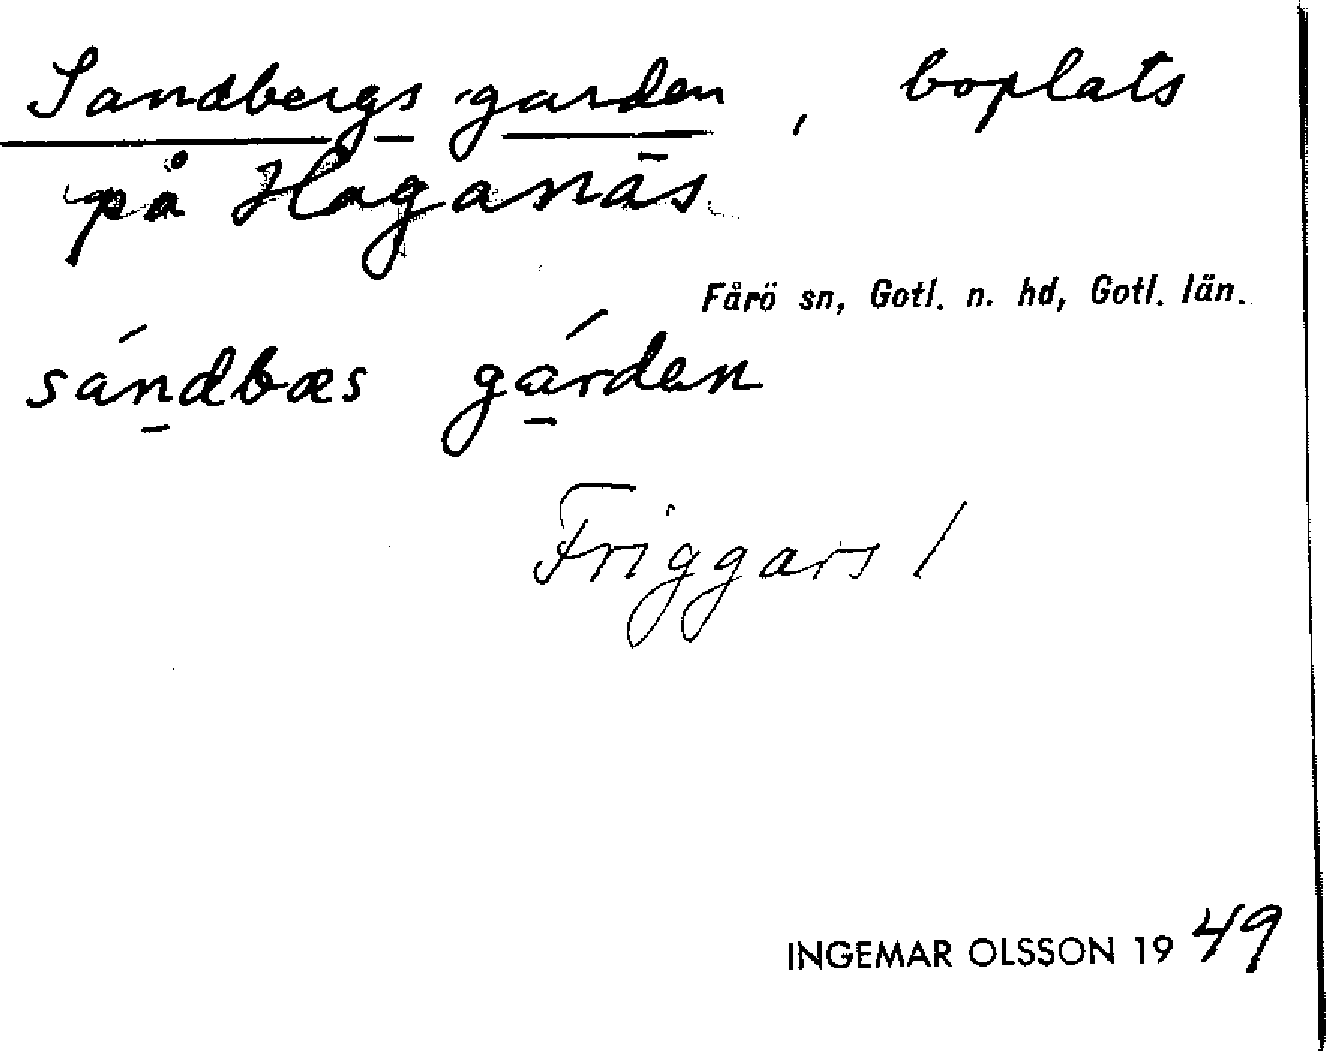 Sandbergs garden, boplats
på Haganäs
Fårö sn, Gotl. n. hd, Gotl. län.
sándbæs gárden
Friggars /
INGEMAR OLSSON 1949